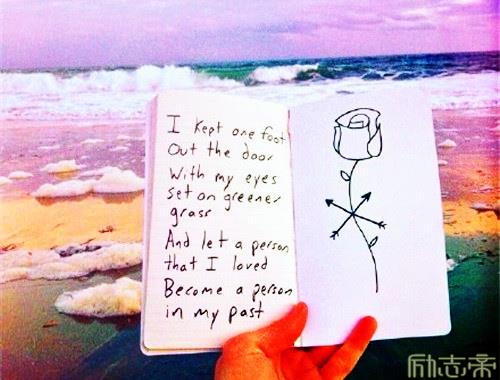 I kept one foot
Out the door
With my eyes
set on greener
grass
And let a person
that I loved
Become a person
in my past
励志帝